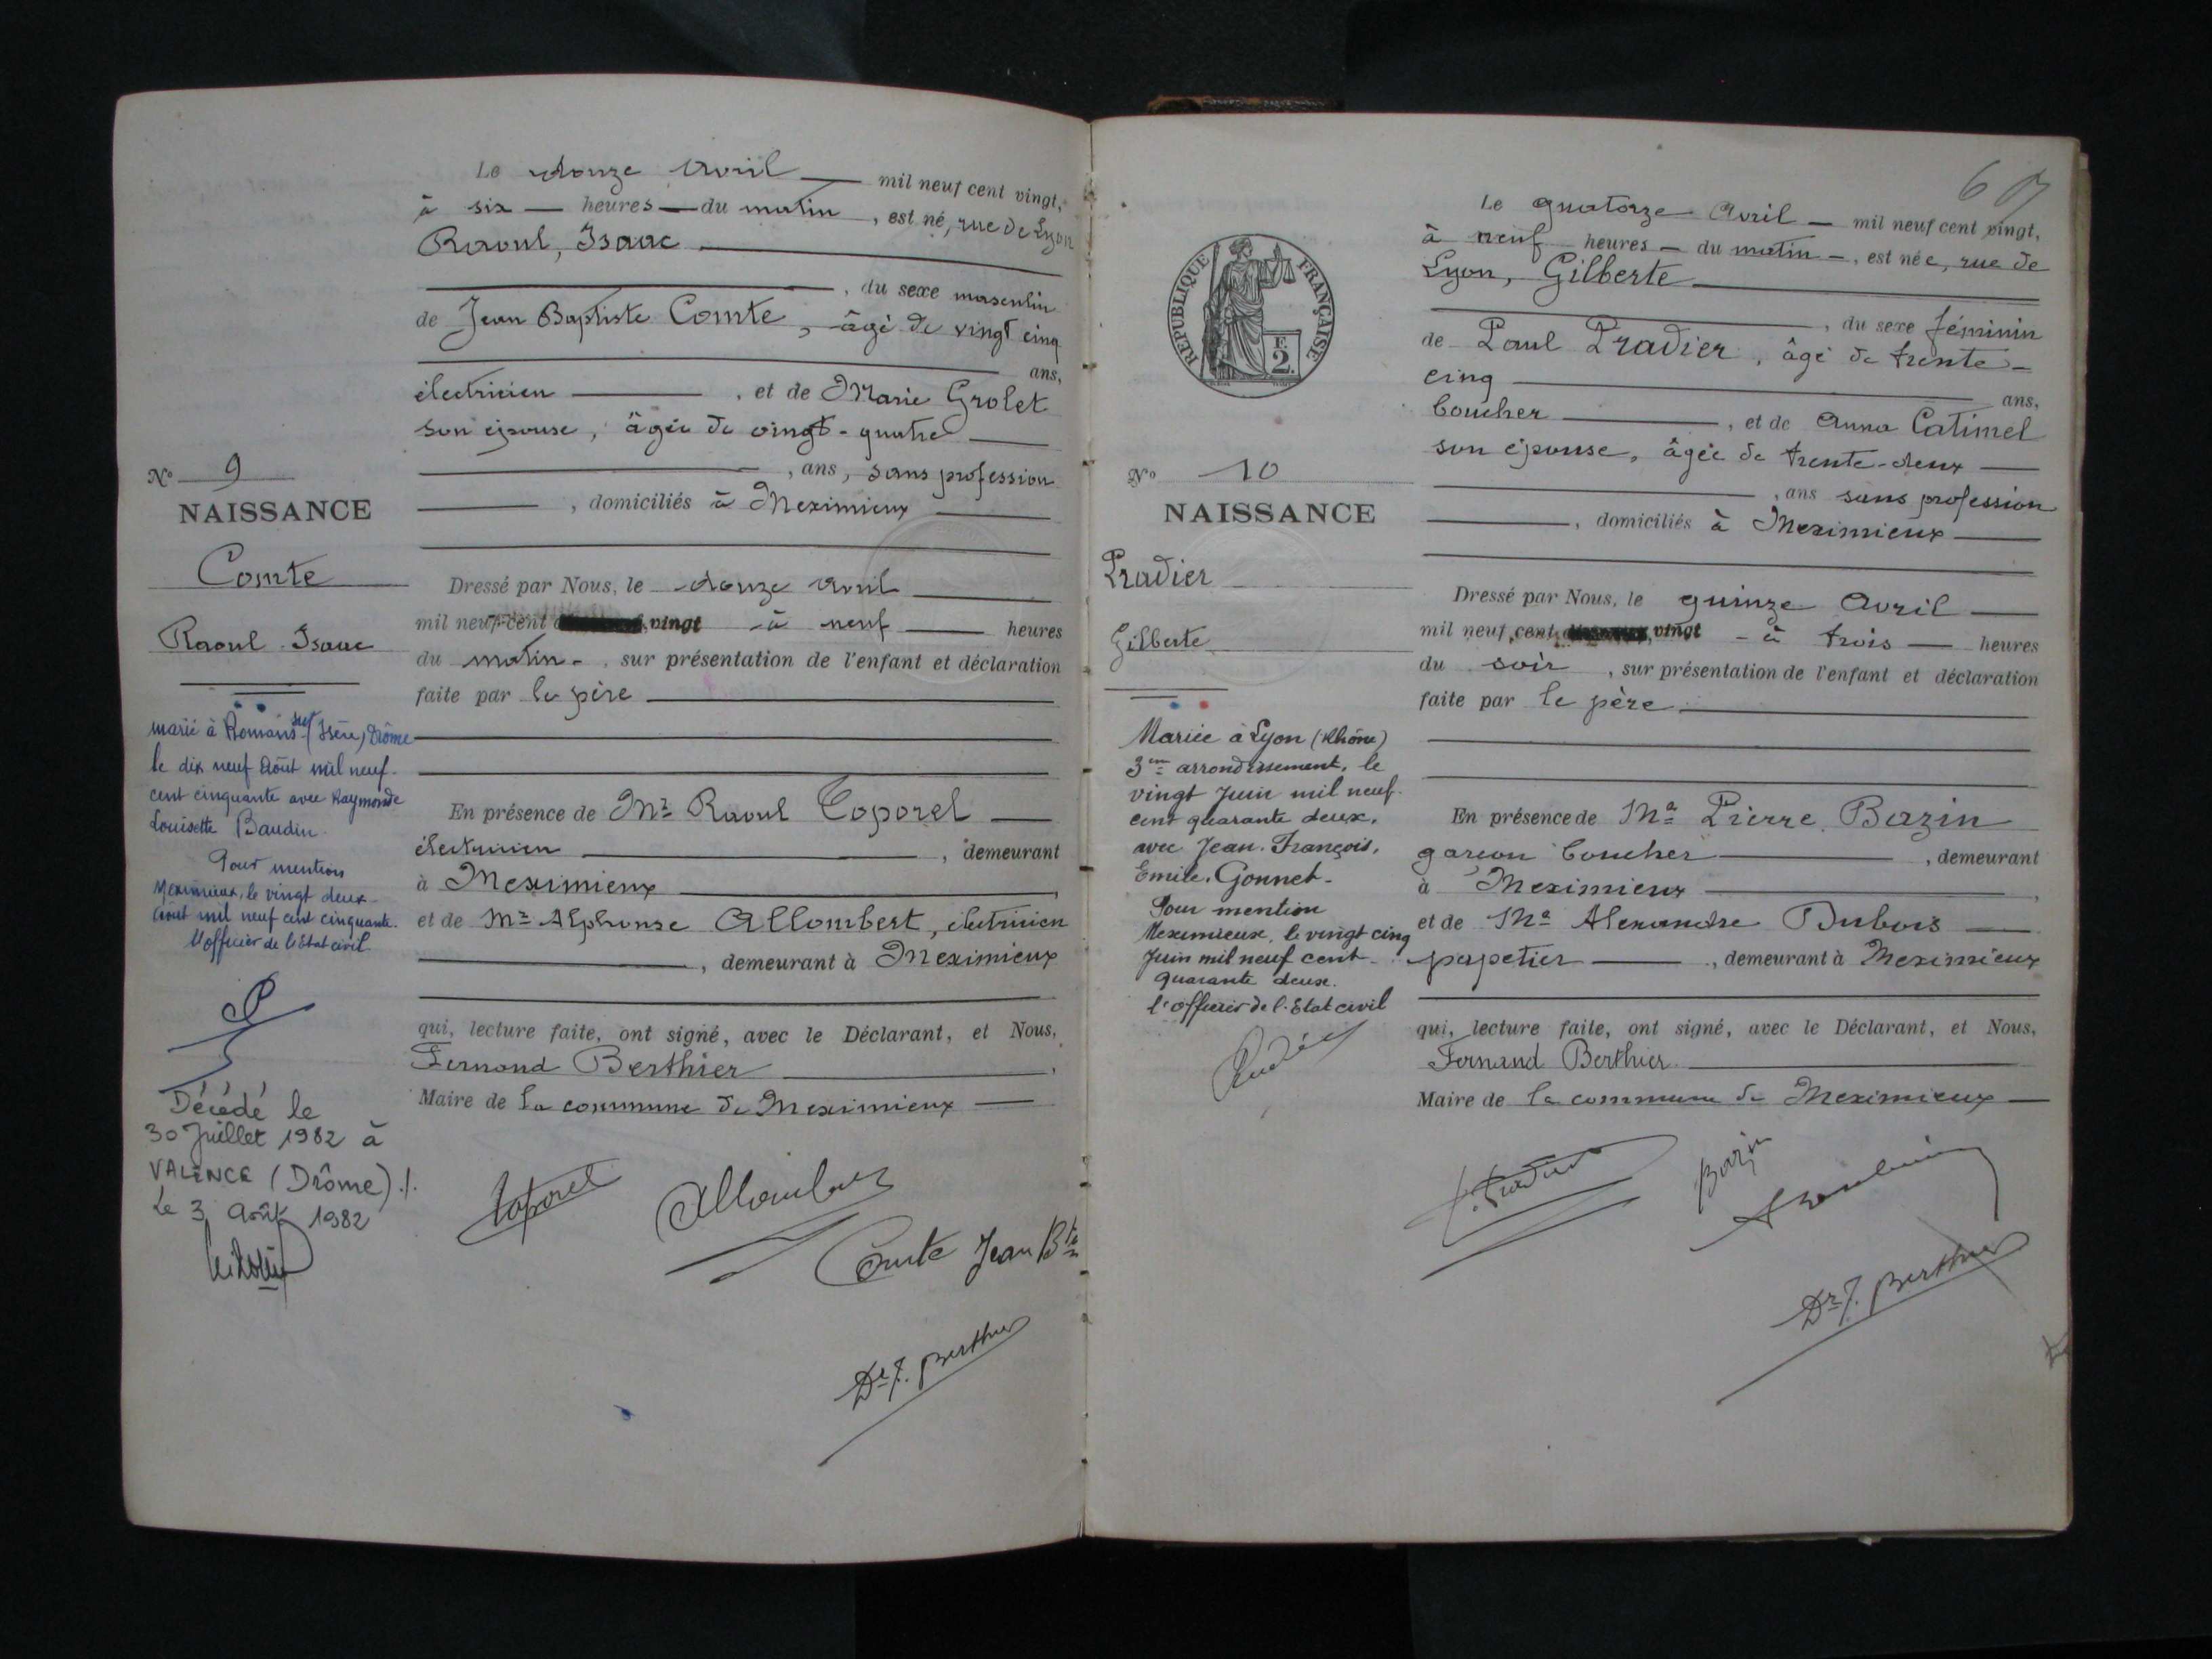 Le douze avril mil neuf cent vingt,
à six heures du matin, est né, rue de Lyon
Raoul, Isaac
, du sexe masculin
de Jean Baptiste Comte, âgé de vingt cinq
ans,
électricien, et de Marie Grolet
son épouse, âgée de vingt-quatre
, ans, sans profession
, domiciliés à Meximieux
N° 9
NAISSANCE
Comte
Raoul Isaac
Dressé par Nous, le douze avril
mil neuf cent vingt à neuf heures
du matin, sur présentation de l'enfant et déclaration
faite par le père
En présence de Mr Raoul Toporel
électricien, demeurant
à Meximieux,
et de Mr Alphonse Allombert, électricien
, demeurant à Meximieux
qui, lecture faite, ont signé, avec le Déclarant, et Nous,
Fernand Berthier,
Maire de la commune de Meximieux
marié à Romans sur Isère, Drôme
le dix neuf Août mil neuf
cent cinquante avec Raymonde
Louisette Baudin.
Pour mention
Meximieux, le vingt deux
Août mil neuf cent cinquante.
L'officier de l'Etat civil
Décédé le
30 Juillet 1982 à
VALENCE (Drôme) ./.
Le 3 Août 1982
Toporel
Allombert
Comte Jean Bte
Dr F. Berthier
6
Le quatorze Avril mil neuf cent vingt,
à neuf heures du matin, est née, rue de
Lyon, Gilberte
, du sexe féminin
de Paul Pradier, âgé de trente-
cinq ans,
boucher, et de Anna Catimel
son épouse, âgée de trente-deux
, ans sans profession
, domiciliés à Meximieux
RÉPUBLIQUE FRANÇAISE
F.
2.
N° 10
NAISSANCE
Pradier
Gilberte
Dressé par Nous, le quinze Avril
mil neuf cent vingt - à trois heures
du soir, sur présentation de l'enfant et déclaration
faite par le père
En présence de Mr Pierre Bazin
garçon boucher, demeurant
à Meximieux,
et de Mr Alexandre Dubois
papetier, demeurant à Meximieux
qui, lecture faite, ont signé, avec le Déclarant, et Nous,
Fernand Berthier
Maire de la commune de Meximieux
Mariée à Lyon (Rhône)
3me arrondissement, le
vingt Juin mil neuf
cent quarante deux,
avec Jean. François,
Emile. Gonnet.
Pour mention
Meximieux, le vingt cinq
Juin mil neuf cent
quarante deux.
l'officier de l'Etat civil
P. Pradier
Bazin
Dr F. Berthier